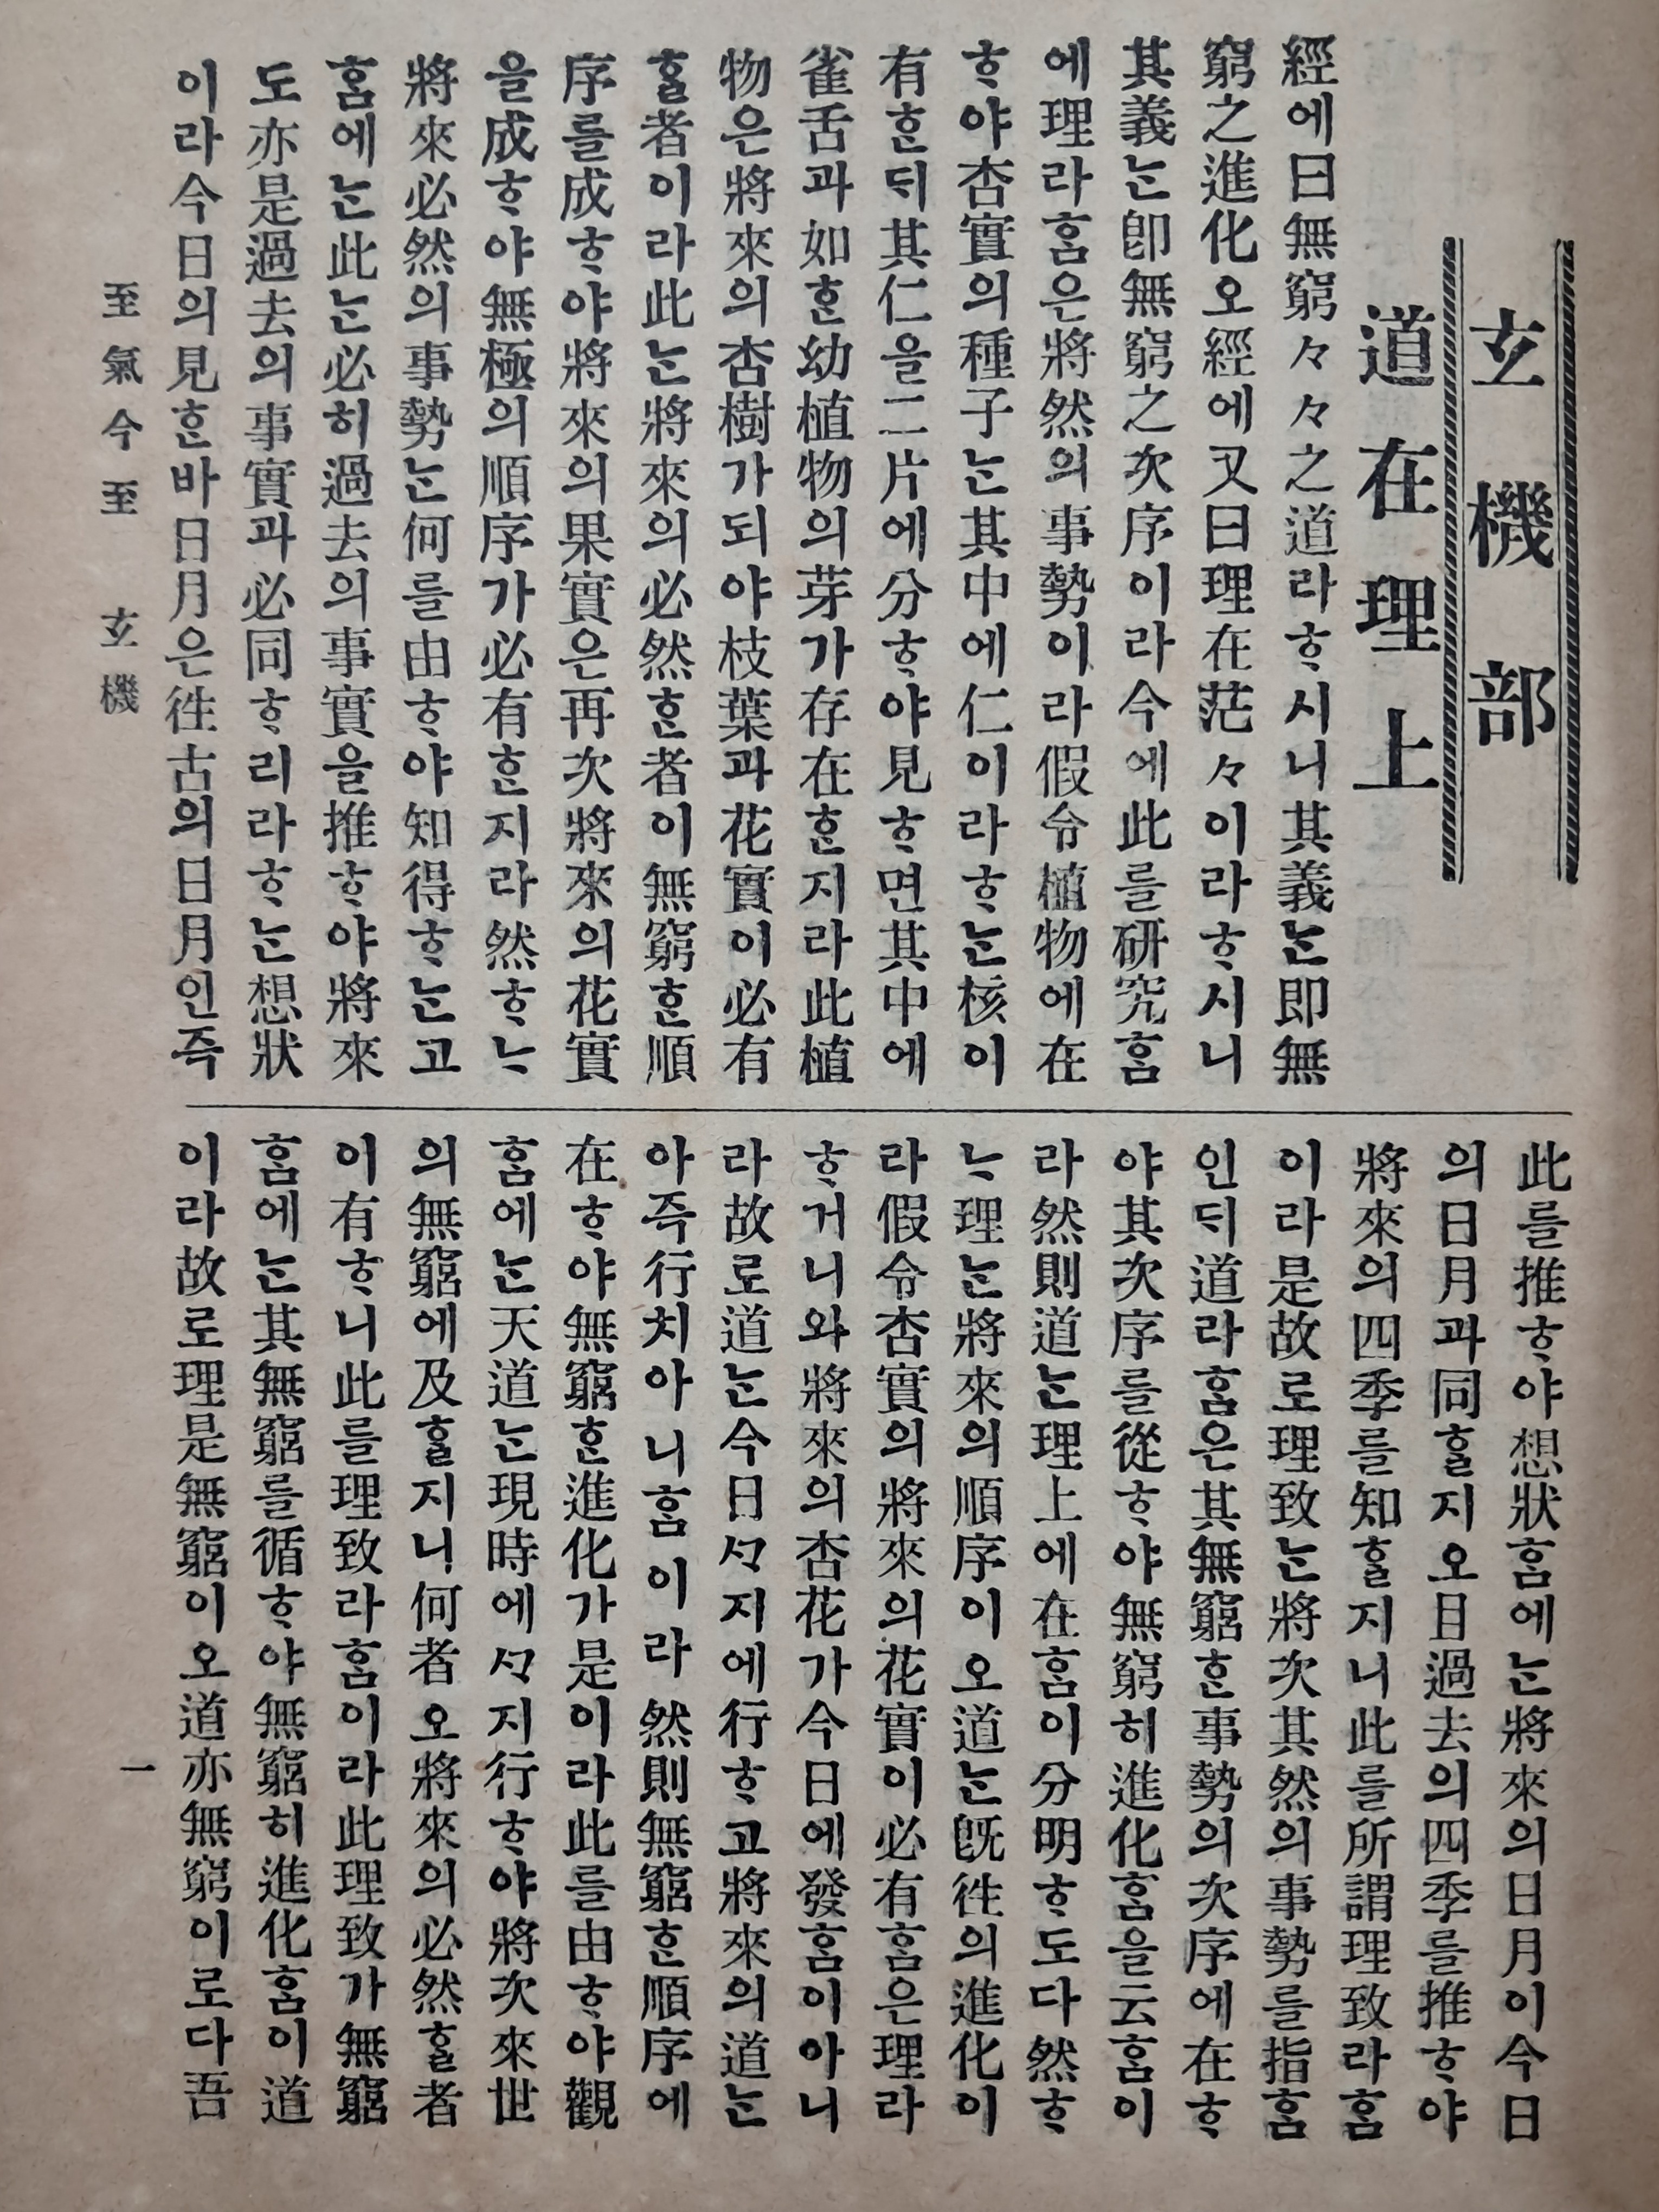 玄機部
道在理上
經에曰無窮々々之道라ᄒᆞ시니其義ᄂᆞᆫ即無
窮之進化오經에又曰理在茫々이라ᄒᆞ시니
其義ᄂᆞᆫ卽無窮之次序이라今에此를硏究ᄒᆞᆷ
에理라ᄒᆞᆷ은將然의事勢이라假令植物에在
ᄒᆞ야杏實의種子ᄂᆞᆫ其中에仁이라ᄒᆞᄂᆞᆫ核이
有ᄒᆞᆫᄃᆡ其仁을二片에分ᄒᆞ야見ᄒᆞ면其中에
雀舌과如ᄒᆞᆫ幼植物의芽가存在ᄒᆞᆫ지라此植
物은將來의杏樹가되야枝葉과花實이必有
ᄒᆞᆯ者이라此ᄂᆞᆫ將來의必然ᄒᆞᆫ者이無窮ᄒᆞᆫ順
序를成ᄒᆞ야將來의果實은再次將來의花實
을成ᄒᆞ야無極의順序가必有ᄒᆞᆫ지라然ᄒᆞᄂᆞ
將來必然의事勢ᄂᆞᆫ何를由ᄒᆞ야知得ᄒᆞᄂᆞᆫ고
ᄒᆞᆷ에ᄂᆞᆫ此ᄂᆞᆫ必히過去의事實을推ᄒᆞ야將來
도亦是過去의事實과必同ᄒᆞ리라ᄒᆞᄂᆞᆫ想狀
이라今日의見ᄒᆞᆫ바日月은徃古의日月인즉
此를推ᄒᆞ야想狀ᄒᆞᆷ에ᄂᆞᆫ將來의日月이今日
의日月과同ᄒᆞᆯ지오且過去의四季를推ᄒᆞ야
將來의四季를知ᄒᆞᆯ지니此를所謂理致라ᄒᆞᆷ
이라是故로理致ᄂᆞᆫ將次其然의事勢를指ᄒᆞᆷ
인ᄃᆡ道라ᄒᆞᆷ은其無窮ᄒᆞᆫ事勢의次序에在ᄒᆞ
야其次序를從ᄒᆞ야無窮히進化ᄒᆞᆷ을云ᄒᆞᆷ이
라然則道ᄂᆞᆫ理上에在ᄒᆞᆷ이分明ᄒᆞ도다然ᄒᆞ
ᄂᆞ理ᄂᆞᆫ將來의順序이오道ᄂᆞᆫ旣徃의進化이
라假令杏實의將來의花實이必有ᄒᆞᆷ은理라
ᄒᆞ거니와將來의杏花가今日에發ᄒᆞᆷ이아니
라故로道ᄂᆞᆫ今日ᄭᆞ지에行ᄒᆞ고將來의道ᄂᆞᆫ
아즉行치아니ᄒᆞᆷ이라然則無窮ᄒᆞᆫ順序에
在ᄒᆞ야無窮ᄒᆞᆫ進化가是이라此를由ᄒᆞ야觀
ᄒᆞᆷ에ᄂᆞᆫ天道ᄂᆞᆫ現時에ᄭᆞ지行ᄒᆞ야將次來世
의無窮에及ᄒᆞᆯ지니何者오將來의必然ᄒᆞᆯ者
이有ᄒᆞ니此를理致라ᄒᆞᆷ이라此理致가無窮
ᄒᆞᆷ에ᄂᆞᆫ其無窮를循ᄒᆞ야無窮히進化ᄒᆞᆷ이道
이라故로理是無窮이오道亦無窮이로다吾
至氣今至 玄機
一